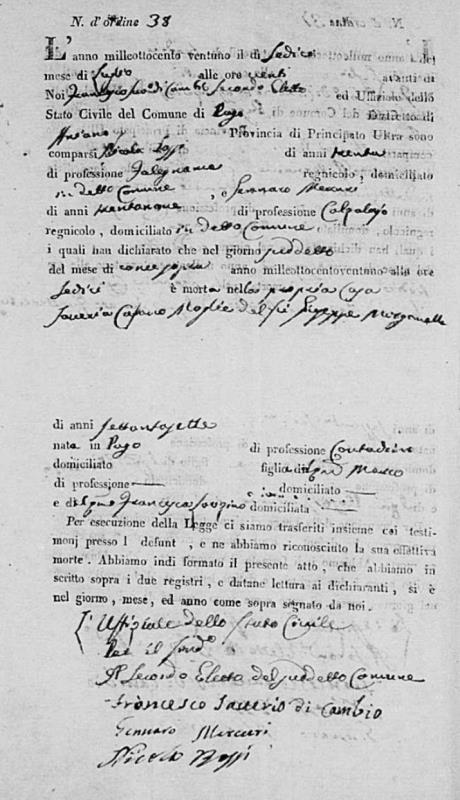 N. d'ordine 38
L'anno milleottocento ventuno il dì Sedici del
mese di alle ore venti avanti di
Noi Francesco di Cambio Secondo Eletto ed Uffiziale dello
Stato Civile del Comune di Pago Distretto di
Ariano Provincia di Principato Ultra sono
comparsi Nicola Rossi di anni trenta
di professione Falegname regnicolo, domiciliato
in detto Comune, e Gennaro Mercuri
di anni trentanove di professione Calzolajo
regnicolo, domiciliato in detto Comune
i quali han dichiarato che nel giorno suddetto
del mese di come sopra anno milleottocentoventuno alle ore
Sedici è morta nella propria Casa
Saveria Casano Moglie del fu Giuseppe
di anni settantasette
nata in Pago di professione Contadina
domiciliato figlia del qm̃ Marco
di professione — domiciliato —
e di qm̃ Francesca domiciliata
Per esecuzione della Legge ci siamo trasferiti insieme coi testi-
monj presso l defunt , e ne abbiamo riconosciuto la sua effettiva
morte. Abbiamo indi formato il presente atto, che abbiamo in-
scritto sopra i due registri, e datane lettura ai dichiaranti, si è
nel giorno, mese, ed anno come sopra segnato da noi.
L'Uffiziale dello Stato Civile
Per il Sind.º
Il Secondo Eletto del suddetto Comune
Francesco Saverio di Cambio
Gennaro Mercuri
Nicola Rossi